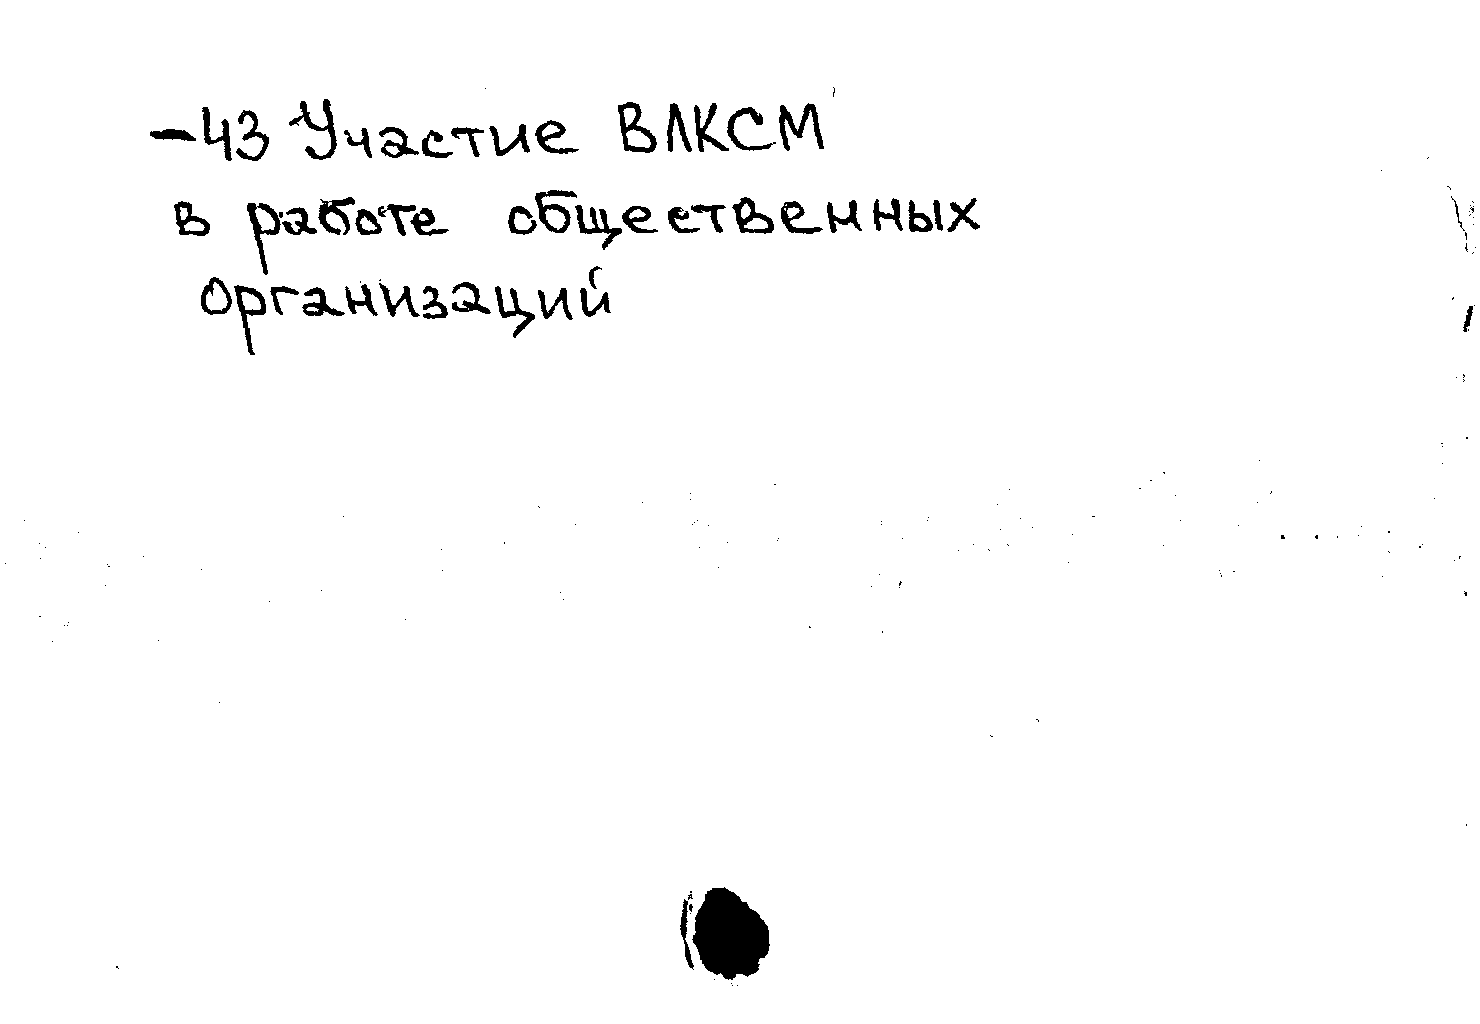 -43 Участие ВЛКСМ
в работе общественных
организаций